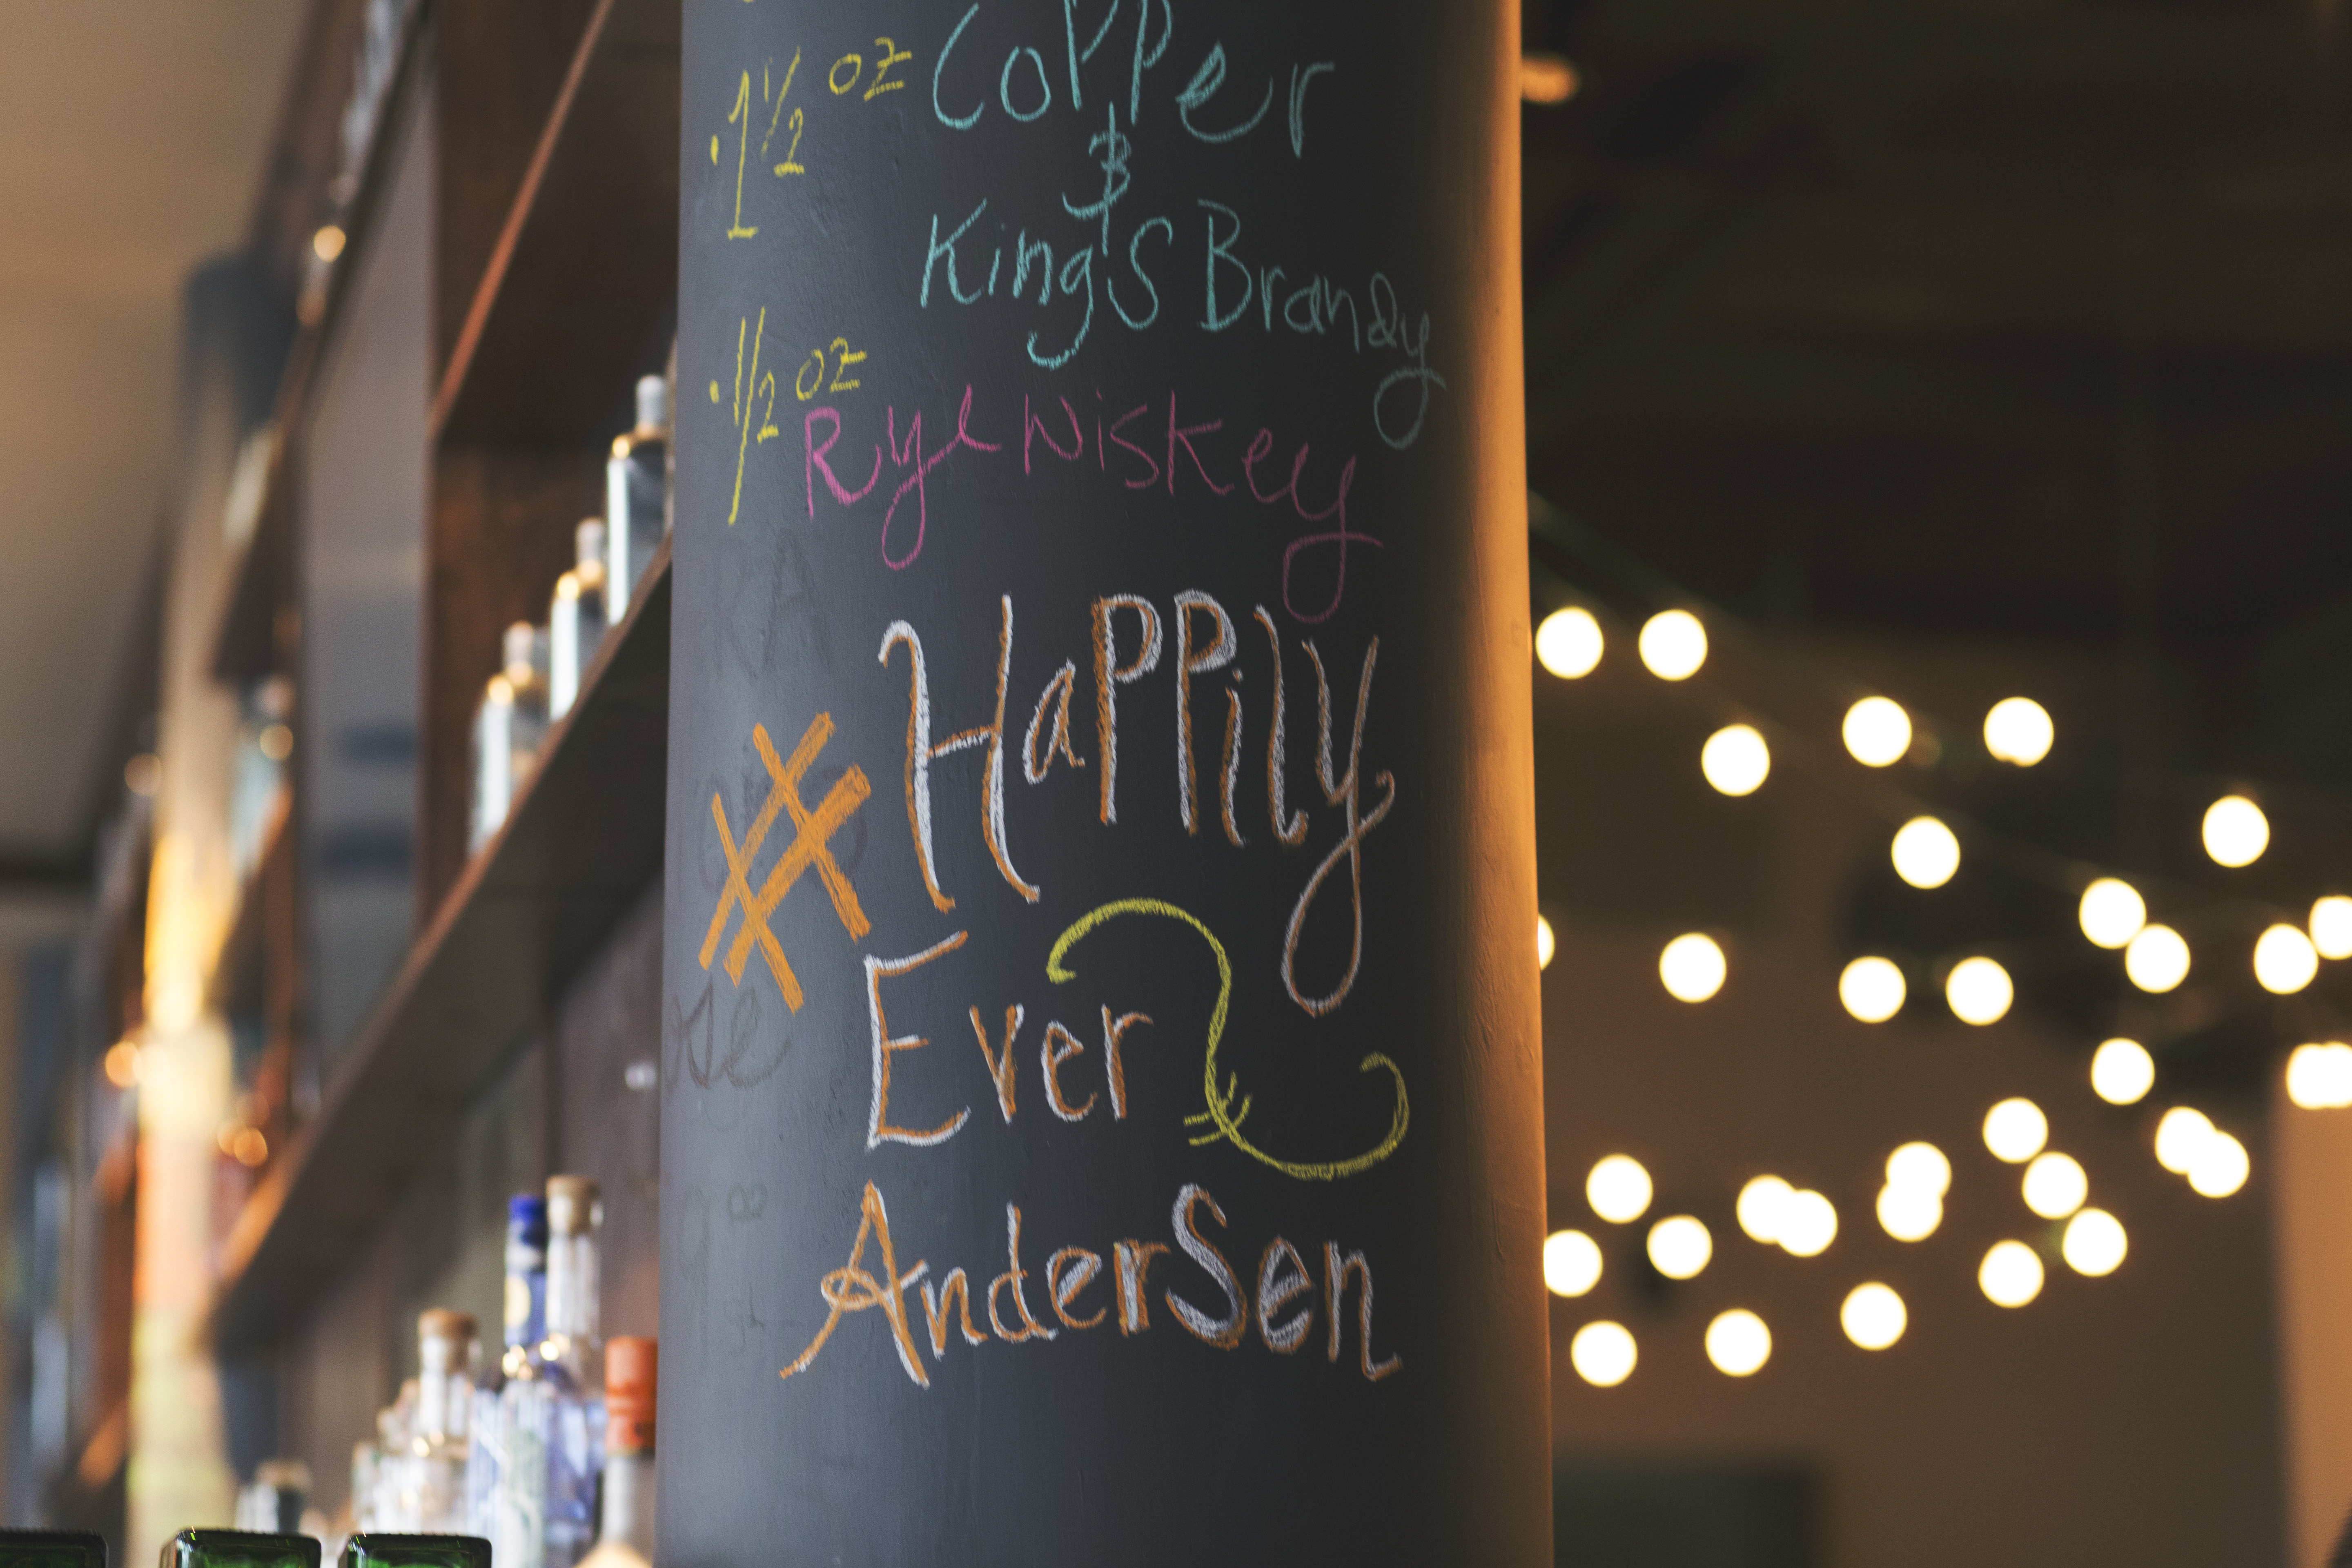 · 1 1/2 oz Copper
&
Kings Brandy
· 1/2 oz Rye Wiskey
# Happily
Ever
Andersen